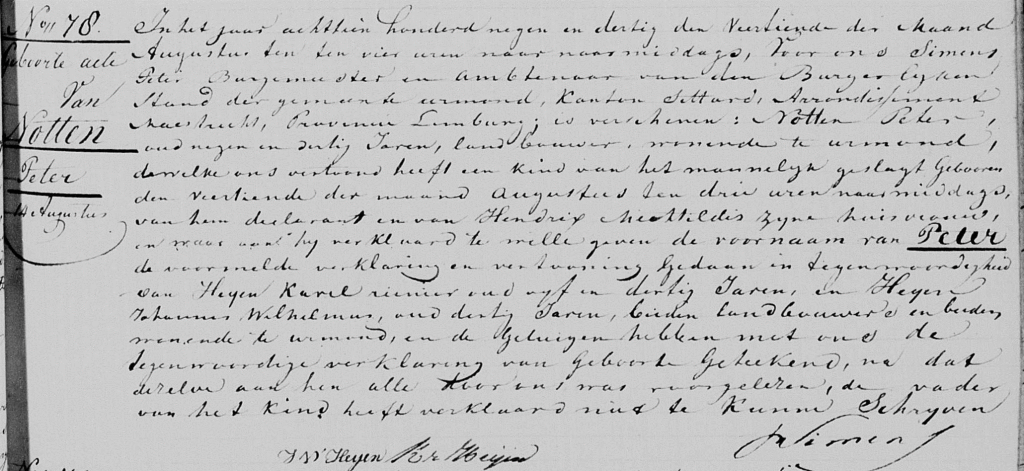 No 78.
Geboorte acte
Van
Notten
Peter
14 Augustus
In het jaar achttien honderd negen en dertig den Veertiende der Maand
Augustus ten ten vier uren naar naarmiddags, Voor ons Simens
Peter Burgemeester en Ambtenaar van den Burger Lyken
Stand der gemeente urmond, Kanton Sittard, Arrondissement
Maestricht, Provincie Limburg; is verschenen: Notten Peter,
oud negen en dertig Jaren, landbouwer, wonende te urmond,
dewelke ons vertoond heeft een kind van het mannelyk geslagt Gebooren
den veertiende der maand Augustus ten drie uren naarmiddags,
van hem declarant en van Hendrix Mechtildis zyne huisvrouw,
en waar aan hy verklaard te wille geven de voornaam van Peter
de voormelde verklaring en vertooning Gedaan in tegenwoordigheid
van Heyen Karel rienier oud vyf en dertig Jaren, en Heyen
Johannes Wilhelmus, oud dertig Jaren, beiden landbouwers en beiden
wonende te urmond, en de Getuigen hebben met ons de
tegenwoordige verklaring van Geboorte Geteekend, na dat
dezelve aan hen alle door ons was voorgelezen, de vader
van het kind heeft verklaard niet te kunne Schryven
J W Heyen K R Heijen
P Simens